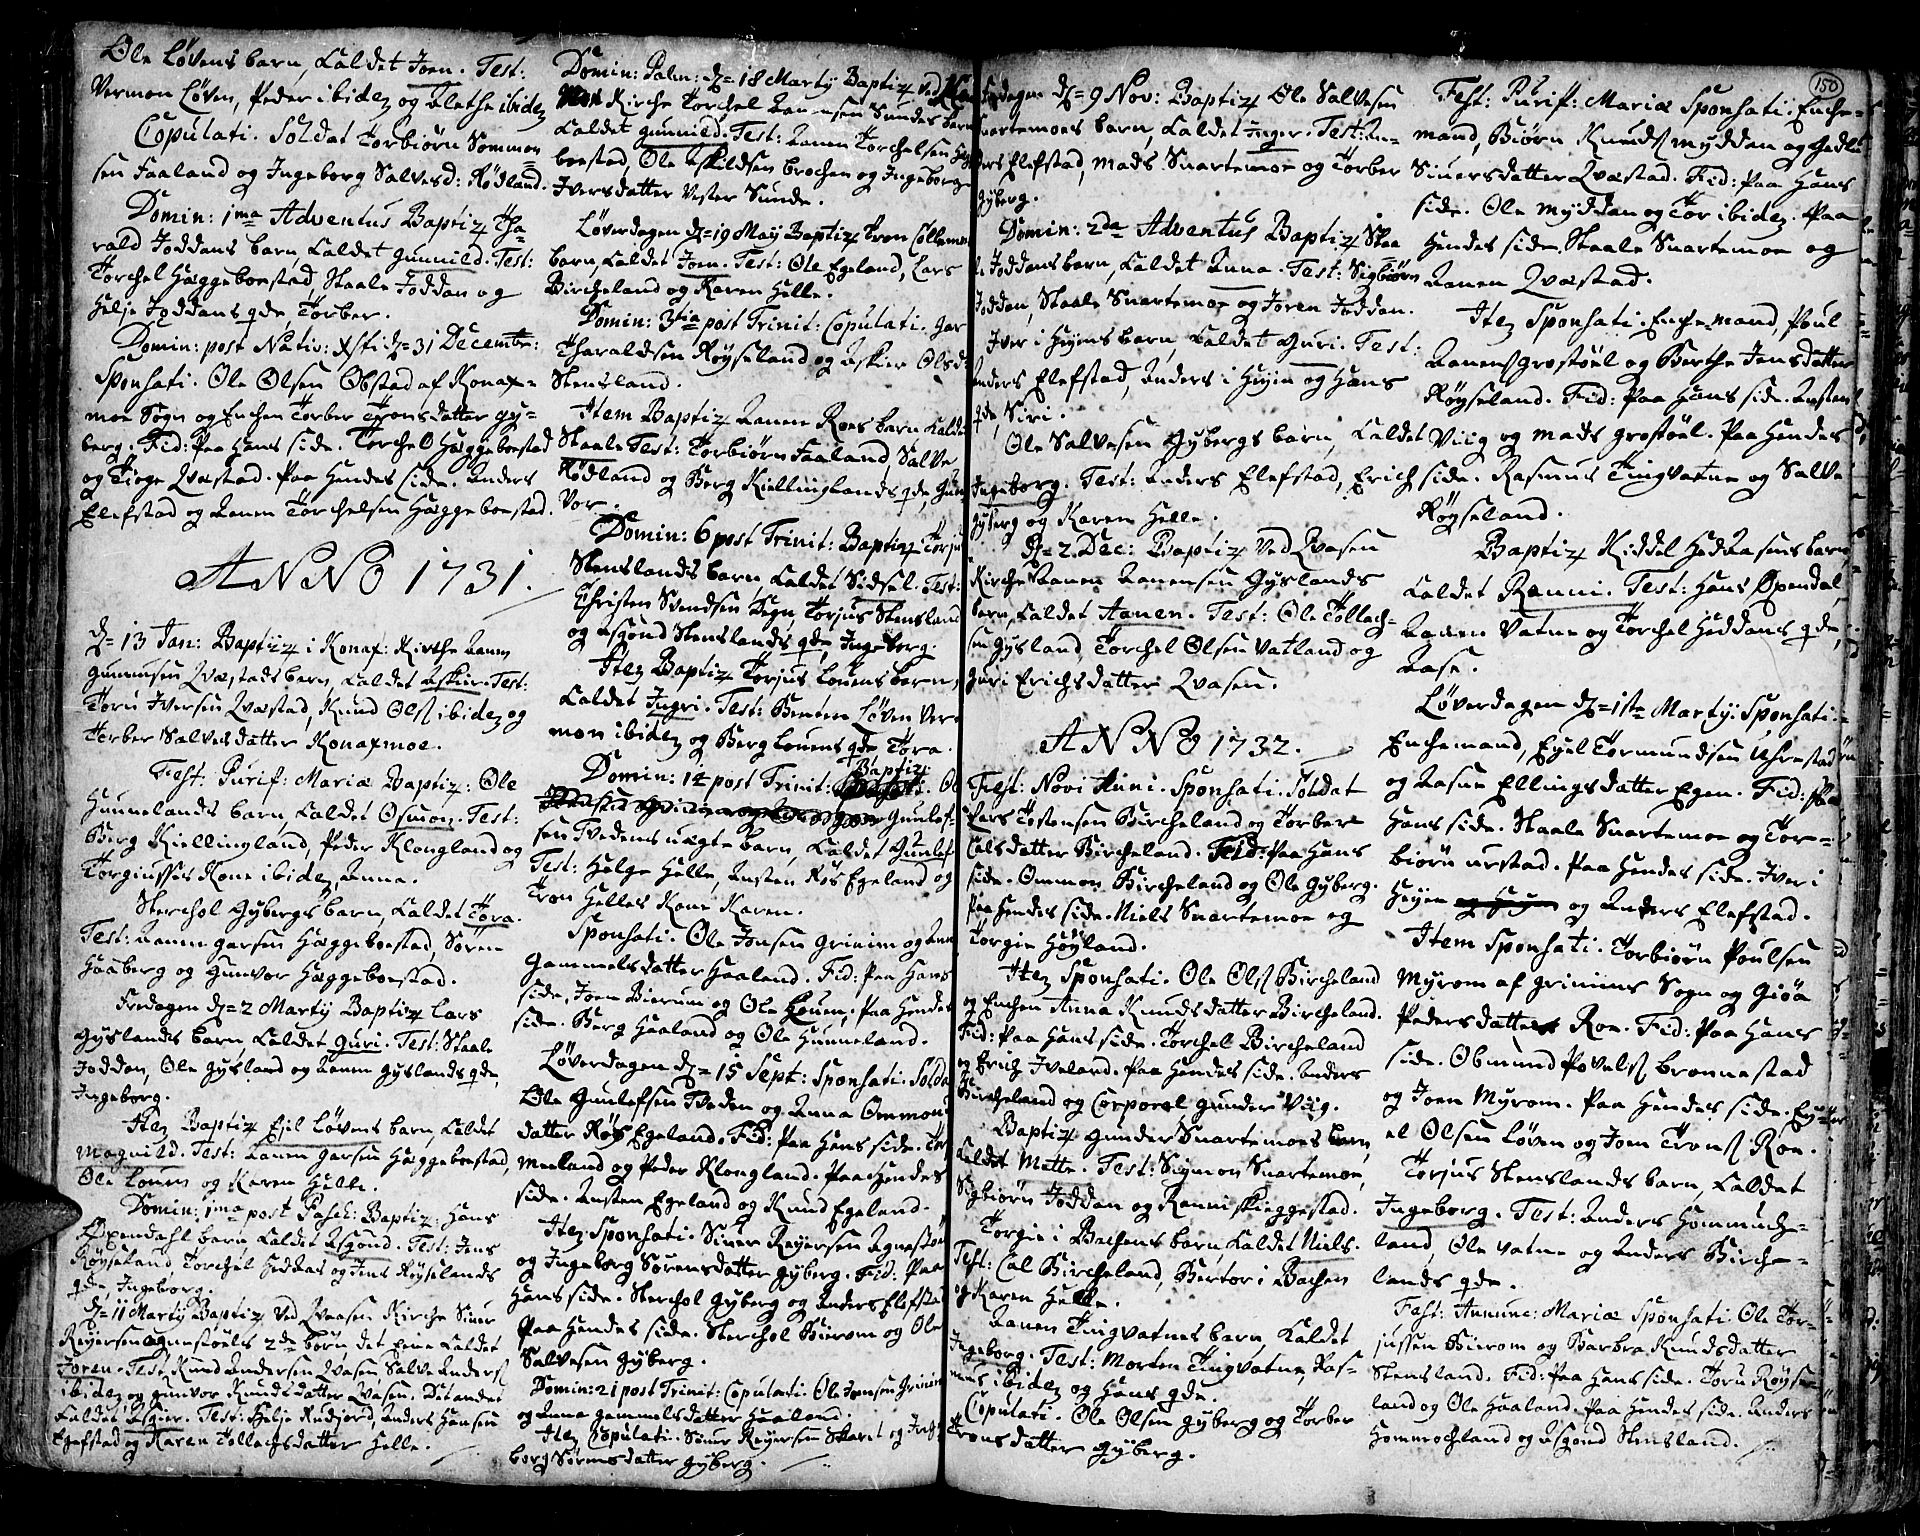 Ole Løvens barn, kaldet Joen. Test:
Vermon Løven, Peder ibidem og Alethe ibidem
Copulati. Soldat Torbiørn Sommon=
sen Faaland og Ingeborg Salvesd: Rødland.
Domin: 1ma Adventus Baptiz Tha=
rald Joddans barn, kaldet Gunnild. Test:
Torchel Hæggeboestad, Staale Joddan og
Helje Joddans qde, Torber.
Domin: post Nativ: Xsti d= 31 Decembr:
Sponsati. Ole Olsen Obstad af Konas=
moe Sogn og Enchen Torber Tronsdatter Gy=
berg. Fid: Paa Hans side. Torchel Hæggeboestad
og Tioge Qvæstad. Paa Hendes side. Anders
Elefstad og Aanen Torchelsen Hæggeboestad.
ANNO 1731.
d= 13 Jan: Baptiz i Konas: Kirche Aanen
Gunnufsen Qvæstads barn, kaldet Askier. Test:
Toru Iversen Qvæstad, Knud Ols ibidem og
Torber Salvesdatter Konasmoe.
Fest. Purif: Mariæ Baptiz: Ole
Hunnelands barn, kaldet Osmon. Test:
Berg Kiellingland, Peder Klongland og
Torgiusses Kone ibidem, Anna.
Sterchol Gybergs barn, kaldet Tora.
Test: Aanen Garsen Hæggeboestad, Søren
Haaberg og Gunvor Hæggeboestad.
Fredagen d= 2 Martij Baptiz Lars
Gyslands barn kaldet Guri. Test: Staale
Joddan, Ole Gysland og Aanen Gyslands qde,
Ingeborg.
Item Baptiz Ejel Løvens barn, kaldet
Magnild. Test: Aanen Garsen Hæggeboestad,
Ole Louen og Karen Helle.
Domin: 1ma post Pasch: Baptiz: Hans
Øpendahl barn kaldet Asgond. Test: Jens
Røyseland Torchel Heddas og Jens Røyselands
qde, Ingeborg.
d= 11 Martij Baptiz ved Qvaasen Kirche Siver
Reyersen Agnestøels 2de børn det eene kaldet
Joren. Test. Knud Andersen Qvasen, Salve Anders
ibidem og Gunvor Knudsdatter Qvasen. Dit andet
kaldet Asgier. Test: Helje Rudjord, Anders Hansen
Egefstad og Karen Tollachsdatter Helle.
Domin: Palm: d= 18 Martij Baptiz ved
Kirche Torchel Aanensen Sundes barn
kaldet Gunnild. Test: Aanen Torchelsen
boestad, Ole Eskildsen Brochen og Ingeborg
Iversdatter Vester Sunde.
Løverdagen d= 19 Maij Baptiz Tron
barn, kaldet Joen. Test: Ole Egeland, Lars
Bircheland og Karen Helle.
Domin: 3tia post Trinit: Copulati. Gar
Tharaldsen Røyseland og Askier Olsd:
Stensland.
Item Baptiz Aanen Roes barn kaldet
Staale. Test: Torbiørn Faaland, Salve
Rødland og Berg Kiellinglands qde, Gun
vor.
Domin: 6 post Trinit: Baptiz Torju
Stenslands barn, kaldet Sidsel. Test:
Christen Svendsen Degn, Torjus Stensland
og Asgond Stenslands qde, Ingeborg.
Item Baptiz Torjus Louens barn,
kaldet Ingri. Test: Benten Løven Ver=
mon ibidem og Berg Louens qde Tora.
Domin: 14 post Trinit: Baptiz: Ol
Gunlef=
sen Tvedens uægte barn, kaldet Gunlef
Test: Helge Helle, Austen Ros Egeland og
Tron Helles Kone Karen.
Sponsati. Ole Jonsen Grinim og Ann
Gammelsdatter Haaland. Fid: Paa Hans
side, Joen Bierum og Ole Louen, Paa Hendes
side. Berg Haaland og Ole Hunneland.
Løverdagen d= 15 Sept: Sponsati. Solda
Ole Gunlefsen Tveden og Anna Ommond
datter Røys Egeland. Fid: Paa Hans side. Tor
meeland og Peder Klongland. Paa Hendes
side. Austen Egeland og Knud Egeland.
Item Sponsati. Siver Reyersen Agnestøel
og Ingeborg Sørensdatter Gyberg. Fid: Paa
Hans side. Sterchol Gyberg og Anders Elefsta
Paa Hendes side. Sterchol Bierom og Ole
Salvesen Gyberg.
Domin: 21 post Trinit: Copulati. Ole Jonsen Grinim
og Anna Gammelsdatter Haaland.
Item Copulati. Siver Reyersen Skaret og Inge
borg Sørensdatter Gyberg.
150
d= 9 Nov: Baptiz Ole Salvesen
Snartemoes barn, kaldet Inger. Test: An=
ders Elefstad, Mads Snartemoe og Torber
Gyberg.
Domin: 2da Adventus Baptiz Staa
le Joddans barn, kaldet Anna. Test: Sigbiørn
Joddan, Staale Snartemoe og Joren Joddan.
Iver i Heyens barn, kaldet Guri. Test:
Anders Elefstad, Anders i Heyen og Hans
qde, Siri.
Ole Salvesen Gybergs barn, kaldet
Ingeborg. Test: Anders Elefstad, Erich
Gyberg og Karen Helle.
d= 2 Dec: Baptiz ved Qvasen
Kirche Aanen Aanensen Gyslands
barn, kaldet Aanen. Test: Ole Tollach=
sen Gysland, Torchel Olsen Vatland og
Guri Erichsdatter Qvasen.
ANNO 1732.
Fest: Novi Anni. Sponsati. Soldat
Lars Tostensen Bircheland og Torber
Calsdatter Bircheland. Fid: Paa Hans
side. Ommon Bircheland og Ole Gyberg.
Paa Hendes side. Niels Snartemoe og
Torgie Høyland.
Item Sponsati. Ole Ols Bircheland
og Enchen Anna Knudsdatter Bircheland.
Fid: Paa Hans side. Torchel Bircheland
og Erich Iveland. Paa Hendes side. Anders
Bircheland og Corporal Gunder Viig.
Baptiz Gunder Snartemoes barn,
kaldet Mette. Test: Siymon Snartemoe,
Sigbiørn Joddan og Ranni Skieggestad.
Torgie i Bachens barn kaldet Niels.
Test: Cal Bircheland, Bertor i Bachen
og Karen Helle.
Aanen Tingvatnes barn, kaldet
Ingeborg. Test: Morten Tingvatne, Ras=
mus ibidem og Hans qde.
Copulati. Ole Olsen Gyberg og Torber
Tronsdatter Gyberg.
Fest: Purif: Mariæ Sponsati. Enche=
mand, Biørn Knuds Myddan og Gedlu
Siversdatter Qvæstad. Fid: Paa Hans
side. Ole Myddan og Tor ibidem. Paa
Hendes side, Staale Snartemoe og
Aanen Qvæstad.
Item Sponsati. Enchemand, Poul
Aanens Grostøel og Berthe Jensdatter
Røyseland. Fid: Paa Hans side. Austen
Viig og Mads Grostøel. Paa Hendes
side. Rasmus Tingvatne og Salve
Røyseland.
Baptiz Kiddel Heddasens barn
kaldet Ranni. Test: Hans Øpendal,
Aanen Vatne og Torchel Heddans qde,
Aase.
Løverdagen d= 1ste Martij: Sponsati.
Enchemand, Ejel Tormundsen Uhrestad
og Aasne Ellingsdatter Egen. Fid: Paa
Hans side. Staale Snartemoe og Tor=
biørn Urstad. Paa Hendes side. Iver i
Heyen og Anders Elefstad.
Item Sponsati. Torbiørn Poulsen
Myrom af Grinims Sogn og Giøa
Pedersdatter Roe. Fid: Paa Hans
side. Obmund Povels Bronnestad
og Joen Myrom. Paa Hendes side.
el Olsen Løven og Joen Trons Roe.
Torjus Stenslands barn, kaldet
Ingeborg. Test: Anders Hommuche=
land, Ole Vatne og Anders Birche=
lands qde.
Fest: Annunc: Mariæ Sponsati. Ole Tor=
jussen Bierom og Barbra Knudsdatter
Stensland. Fid: Paa Hans side. Toru Røyse
land og Ole Haaland. Paa Hendes side. Anders
Hommocheland og Asgond Stensland.